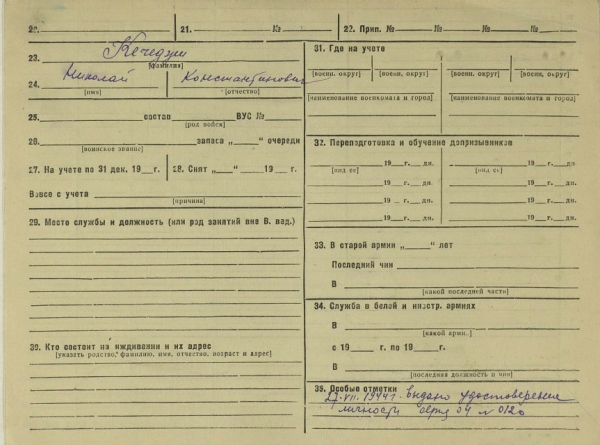 20. 21. К№ 22. Прип. № № № №
23. Кечеджи
[фамилия]
24. Николай Константинович
[имя] [отчество]
25. состав ВУС №
[род войск]
26. запаса „ “ очереди
[воинское звание]
27. На учете по 31 дек. 19 г. 28. Снят „ “ 19 г.
Вовсе с учета
[причина]
29. Место службы и должность (или род занятий вне В. вед.)
30. Кто состоит на иждивении и их адрес
[указать родство, фамилию, имя, отчество, возраст и адрес]
31. Где на учете
[военн. округ] [военн. округ] [военн. округ] [военн. округ]
[наименование военкомата и город] [наименование военкомата и город]
32. Переподготовка и обучение допризывников
19 г. дн. 19 г. дн.
[вид ее] [вид ее]
19 г. дн. 19 г. дн.
19 г. дн. 19 г. дн.
19 г. дн. 19 г. дн.
33. В старой армии „ “ лет
Последний чин
В
[какой последней части]
34. Служба в белой и иностр. армиях
В
[какой армии]
с 19 г. по 19 г.
В
[последняя должность и чин]
35. Особые отметки
27.VII.1944г. выдано удостоверение
личности серия 04 № 0120